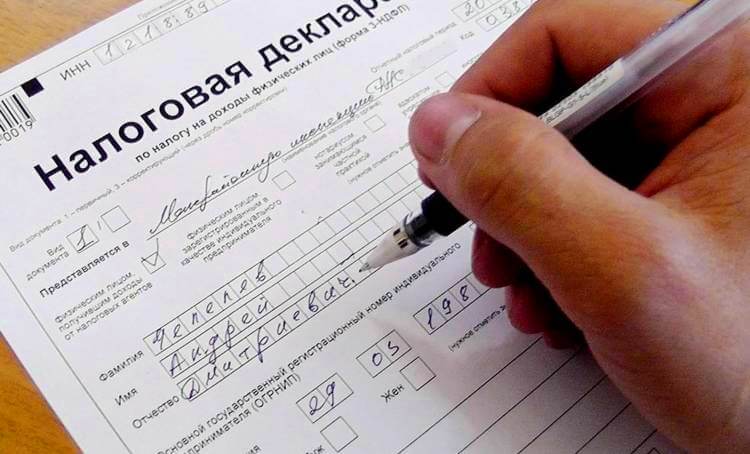 ИНН 121889
-0019
20
Код 033
Налоговая деклар
по налогу на доходы физических лиц (форма 3-НДФЛ)
Отчетный налоговый период
Вид документа: 1 - первичный, 3 - корректирующий (через дробь номер корректировки)
Вид документа 1 /
Представляется в
(наименование налогового органа)
(нужное отметить
физическим лицом, получившим доходы от налоговых агентов
физическим лицом, зарегистрированным в качестве индивидуального предпринимателя
нотариусом, занимающимся частной практикой
адвокатом
Фамилия Чепелев
Имя Андрей
Отчество Дмитриевич
Основной государственный регистрационный номер индивидуального
предпринимателя (ОГРНИП)
29 05 198
Жен
(нужное отметить